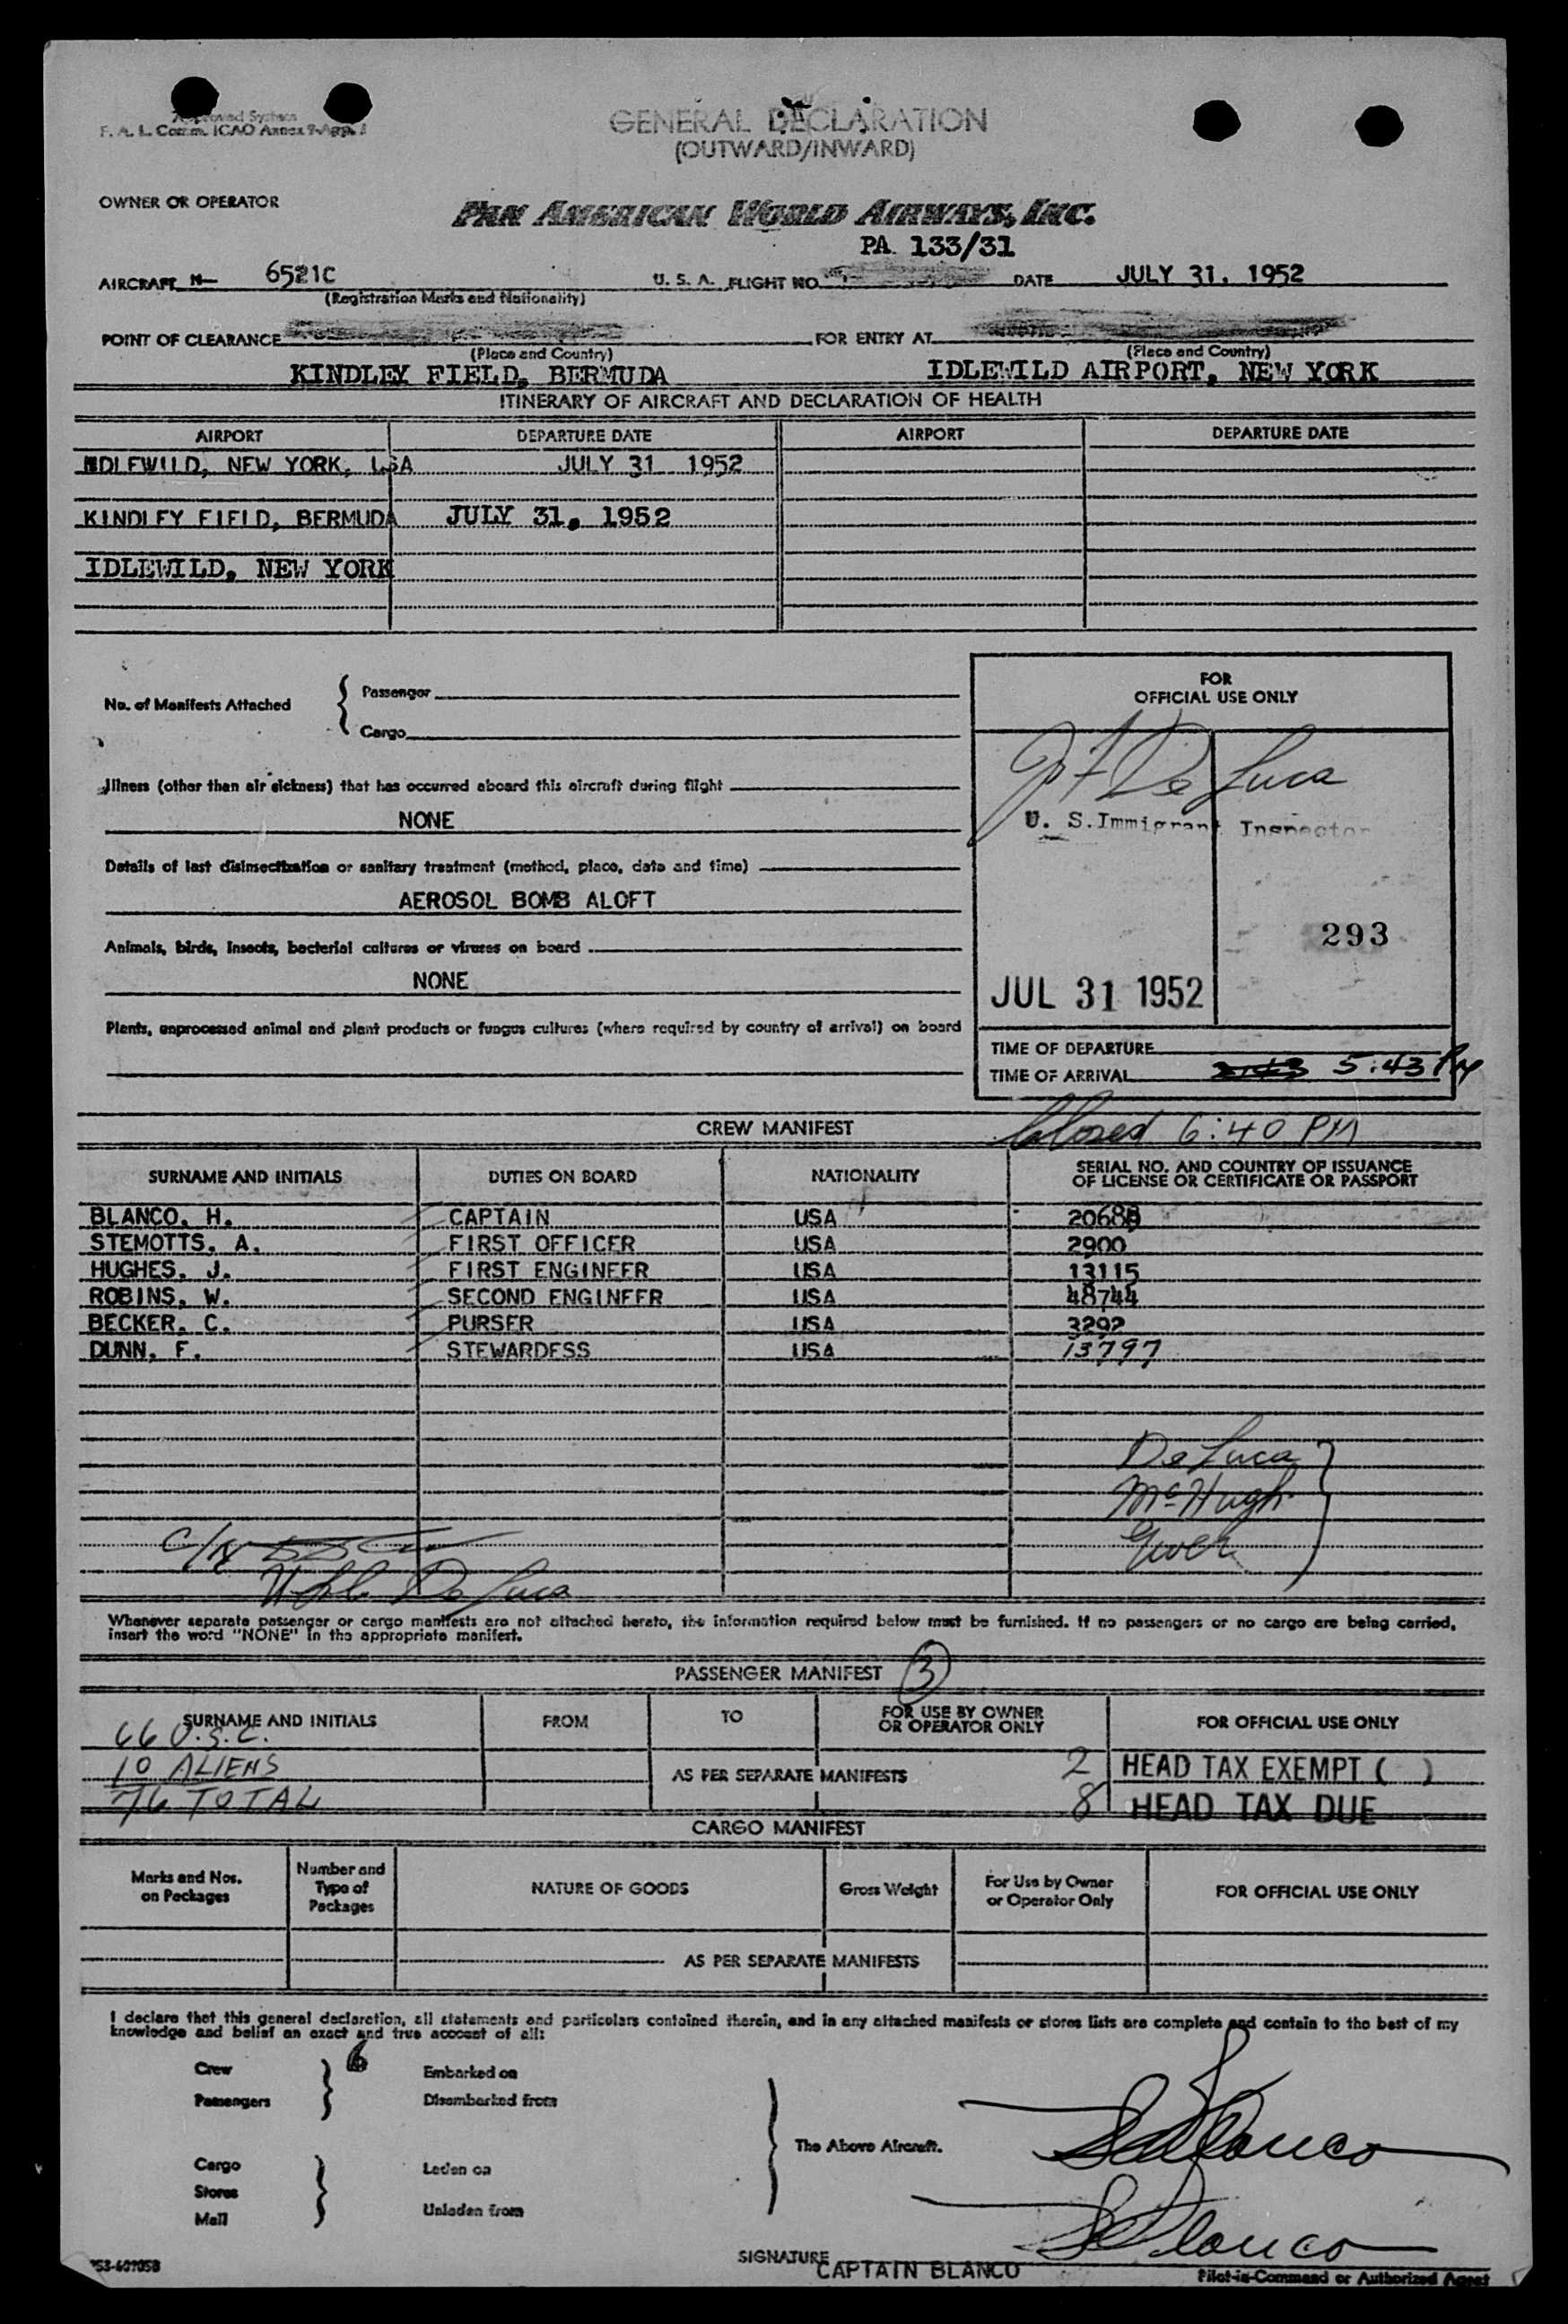 Approved System
F. A. L. Comm. ICAO Annex 9-App. 1
GENERAL DECLARATION
(OUTWARD/INWARD)
OWNER OR OPERATOR
PAN AMERICAN WORLD AIRWAYS, INC.
PA 133/31
AIRCRAFT N- 6521C U. S. A. FLIGHT NO. DATE JULY 31, 1952
(Registration Marks and Nationality)
POINT OF CLEARANCE FOR ENTRY AT
(Place and Country) (Place and Country)
KINDLEY FIELD, BERMUDA IDLEWILD AIRPORT, NEW YORK
ITINERARY OF AIRCRAFT AND DECLARATION OF HEALTH
AIRPORT DEPARTURE DATE AIRPORT DEPARTURE DATE
IDLEWILD, NEW YORK, USA JULY 31 1952
KINDLEY FIELD, BERMUDA JULY 31, 1952
IDLEWILD, NEW YORK
FOR
OFFICIAL USE ONLY
No. of Manifests Attached { Passenger
Cargo
J F De Luca
Illness (other than air sickness) that has occurred aboard this aircraft during flight
NONE
U. S. Immigrant Inspector
Details of last disinsectization or sanitary treatment (method, place, date and time)
AEROSOL BOMB ALOFT
Animals, birds, insects, bacterial cultures or viruses on board
293
NONE
JUL 31 1952
Plants, unprocessed animal and plant products or fungus cultures (where required by country of arrival) on board
TIME OF DEPARTURE
TIME OF ARRIVAL 5:43 PM
CREW MANIFEST Closed 6:40 PM
SURNAME AND INITIALS DUTIES ON BOARD NATIONALITY SERIAL NO. AND COUNTRY OF ISSUANCE
OF LICENSE OR CERTIFICATE OR PASSPORT
BLANCO, H. CAPTAIN USA
STEMOTTS, A. FIRST OFFICER USA 2900
HUGHES, J. FIRST ENGINEER USA 13115
ROBINS, W. SECOND ENGINEER USA 48744
BECKER, C. PURSER USA 3292
DUNN, F. STEWARDESS USA 13797
De Luca
McHugh
De Luca
Whenever separate passenger or cargo manifests are not attached hereto, the information required below must be furnished. If no passengers or no cargo are being carried,
insert the word "NONE" in the appropriate manifest.
PASSENGER MANIFEST 3
SURNAME AND INITIALS FROM TO FOR USE BY OWNER
OR OPERATOR ONLY FOR OFFICIAL USE ONLY
66 U.S.C.
10 ALIENS AS PER SEPARATE MANIFESTS 2 HEAD TAX EXEMPT ( )
76 TOTAL 8 HEAD TAX DUE
CARGO MANIFEST
Marks and Nos.
on Packages Number and
Type of
Packages NATURE OF GOODS Gross Weight For Use by Owner
or Operator Only FOR OFFICIAL USE ONLY
AS PER SEPARATE MANIFESTS
I declare that this general declaration, all statements and particulars contained therein, and in any attached manifests or stores lists are complete and contain to the best of my
knowledge and belief an exact and true account of all:
Crew 6 Embarked on
Passengers Disembarked from
The Above Aircraft.
Cargo Laden on
Stores
Mail Unladen from
SIGNATURE CAPTAIN BLANCO
Pilot-in-Command or Authorized Agent